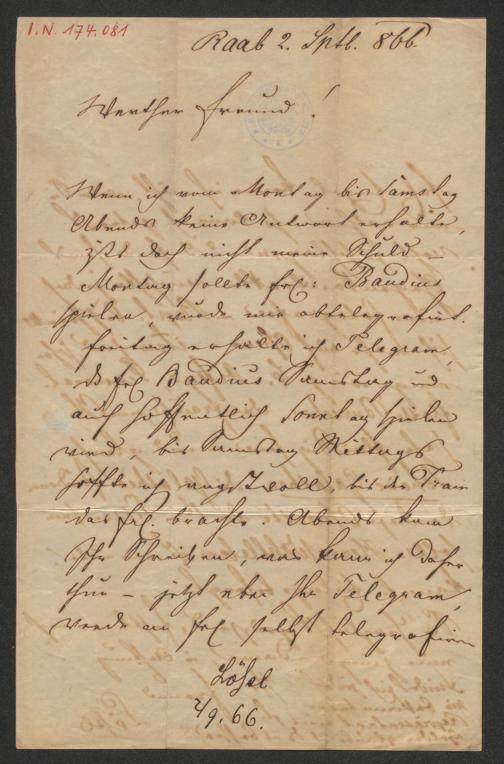 I.N. 174.081
Raab 2. Sptb. 866.
Werther Freund!
Wenn ich vom Montag bis Samstag
Abends keine Antwort erhalte,
ists doch nicht meine Schuld –
Montag sollte Frl: Baudius
spielen, wurde mir abtelegrafirt.
Freitag erhalte ich Telegram,
Frl Baudius Samstag und
auch hoffentlich Sonntag spielen
wird, bis Samstag Mittags
hoffte ich angstvoll, bis der Train
das Frl. brachte. Abends kam
Ihr Schreiben, was kann ich daher
thun – jetzt aber Ihr Telegram,
werde an Frl selbst telegrafiren
Löhsl
2/9.66.